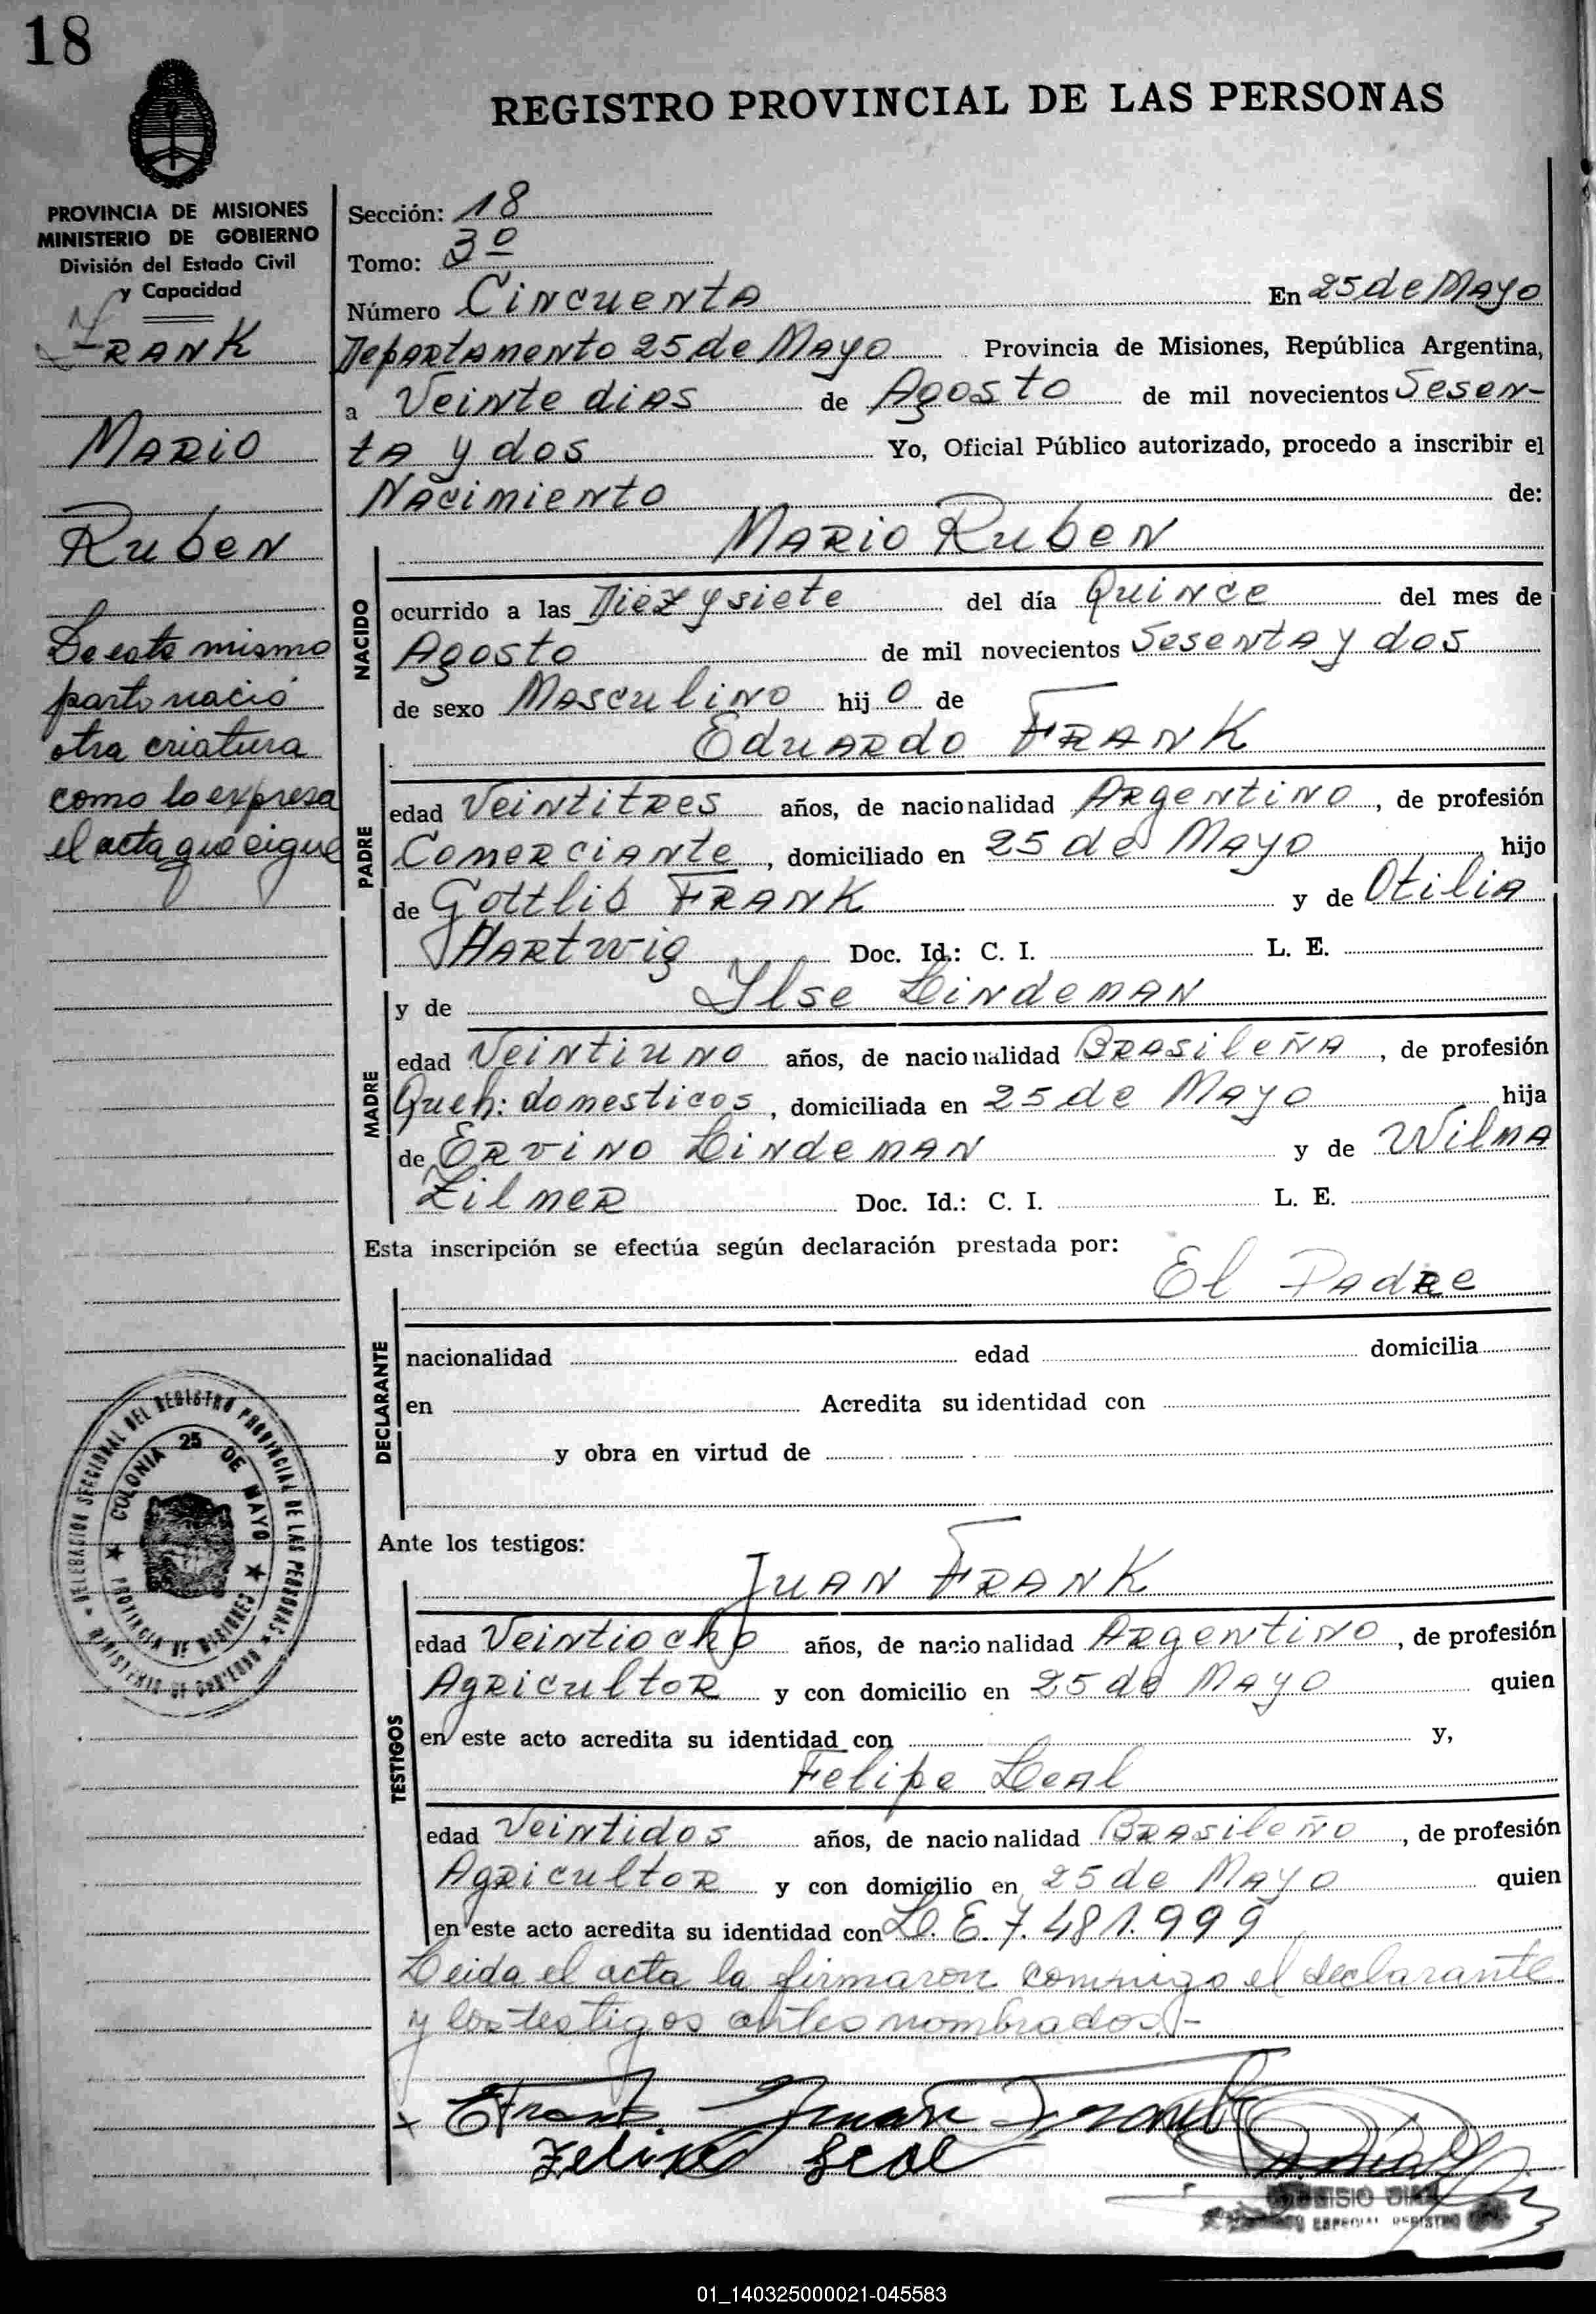 18
REGISTRO PROVINCIAL DE LAS PERSONAS
PROVINCIA DE MISIONES
MINISTERIO DE GOBIERNO
División del Estado Civil
y Capacidad
FRANK
MARIO
RubeN
De este mismo
parto nació
otra criatura
como lo expresa
el acta que sigue
Sección: 18
Tomo: 3º
Número CINCUENTA En 25 de MAYO
DepARtAmeNto 25 de MAYO Provincia de Misiones, República Argentina,
a VeiNte diAS de AgoSto de mil novecientos SeseN-
tA y dos Yo, Oficial Público autorizado, procedo a inscribir el
NAcimieNto de:
MARIO RubeN
NACIDO
ocurrido a las Diez y siete del día QuiNce del mes de
Agosto de mil novecientos SeseNtA y dos
de sexo MAsculiNo hijo de
EduARdo FRANK
PADRE
edad VeiNtitRes años, de nacionalidad ARgeNtiNo, de profesión
ComeRciANte, domiciliado en 25 de MAyo hijo
de Gottlib FRANK y de OtiliA
HARtwig Doc. Id.: C. I. L. E.
MADRE
y de Ilse LiNdemAN
edad VeiNtiuNo años, de nacionalidad BRAsileñA, de profesión
Queh: domesticos, domiciliada en 25 de MAyo hija
de ERviNo LiNdemAN y de WilmA
ZilmeR Doc. Id.: C. I. L. E.
Esta inscripción se efectúa según declaración prestada por:
El PAdRe
DECLARANTE
nacionalidad edad domicilia
en Acredita su identidad con
y obra en virtud de
DELEGACION SECCIONAL DEL REGISTRO PROVINCIAL DE LAS PERSONAS
MINISTERIO DE GOBIERNO
COLONIA 25 DE MAYO
PROVINCIA DE MISIONES
Ante los testigos:
JUAN FRANK
TESTIGOS
edad VeiNtiocho años, de nacionalidad ARgeNtiNo, de profesión
AgRicultoR y con domicilio en 25 de MAyo quien
en este acto acredita su identidad con y,
Felipe LeAl
edad VeiNtidos años, de nacionalidad BRAsileño, de profesión
AgRicultoR y con domicilio en 25 de MAyo quien
en este acto acredita su identidad con L. E. 7.481.999
Leida el acta la firmaron conmigo el declarante
y los testigos antes nombrados.-
E Frank Juan Frank
Felipe Leal
ESPECIAL REGISTRO
01_140325000021-045583